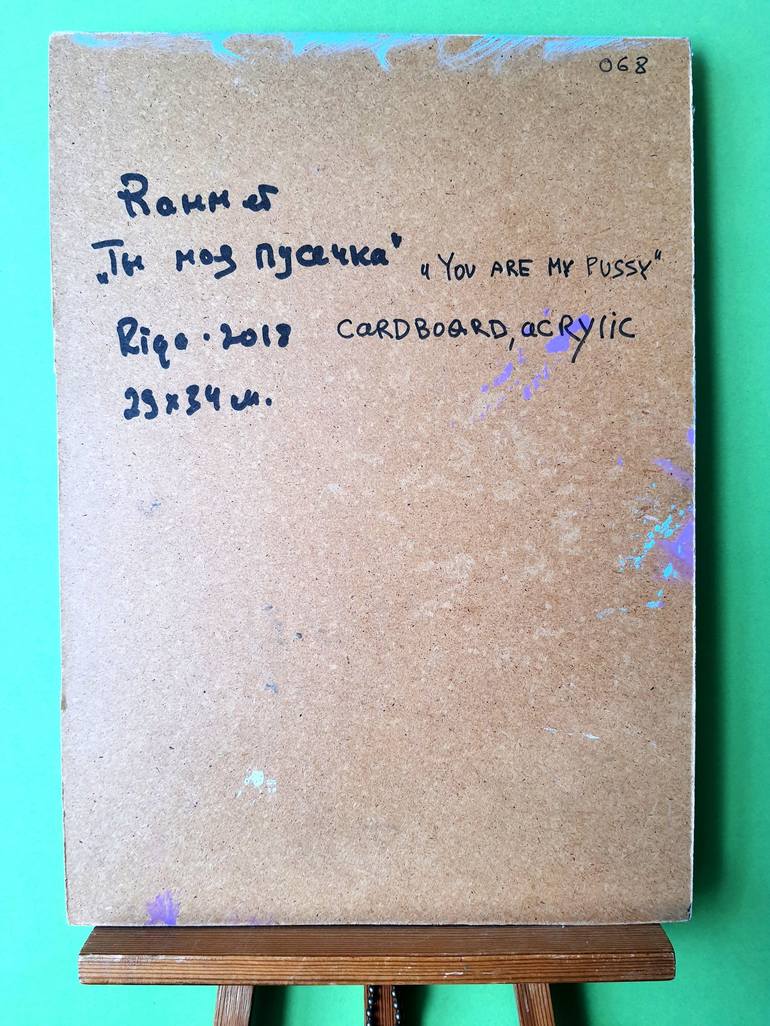 068
Rаннет
„Ты моя пусечка" „YOU ARE MY PUSSY"
Riga · 2018 CARDBOARD, aCRYliC
29x34 см.